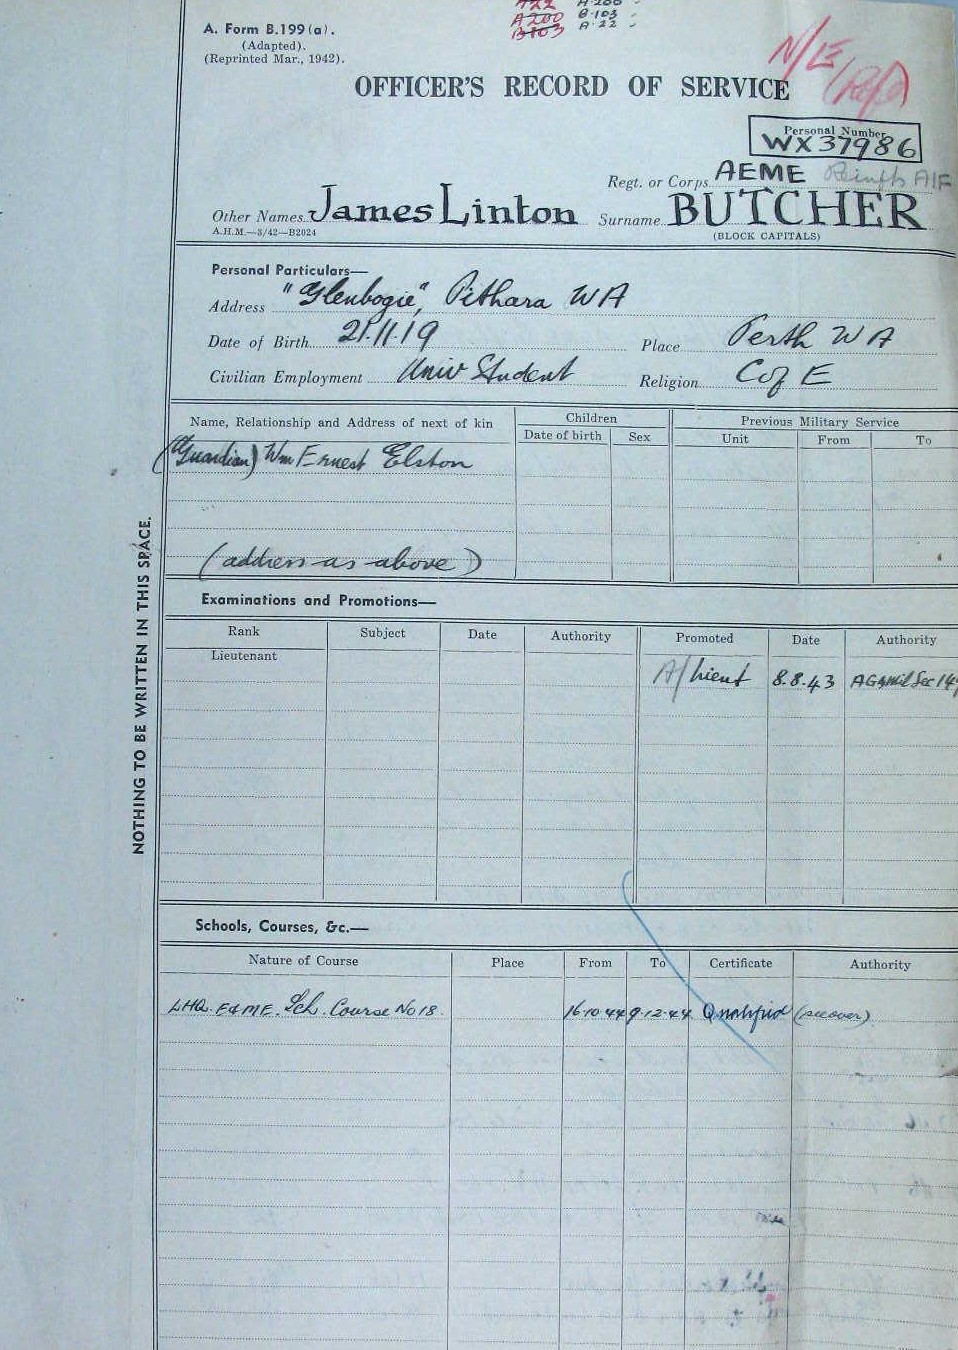 A 200
A. Form B.199 (a).
A200 B.103
(Adapted).
B103 A.22
(Reprinted Mar., 1942).
N/E
OFFICER'S RECORD OF SERVICE
Personal Number
WX37986
Regt. or Corps AEME Reinfts AIF
Other Names James Linton Surname BUTCHER
A.H.M.—3/42—B2024 (BLOCK CAPITALS)
Personal Particulars—
Address "Glenbogie", Pithara WA
Date of Birth 21.11.19 Place Perth WA
Civilian Employment Univ Student Religion C of E
Name, Relationship and Address of next of kin Children Previous Military Service
Date of birth Sex Unit From To
(Guardian) Wm Ernest Elston
(address as above)
NOTHING TO BE WRITTEN IN THIS SPACE.
Examinations and Promotions—
Rank Subject Date Authority Promoted Date Authority
Lieutenant
A/Lieut 8.8.43
Schools, Courses, &c.—
Nature of Course Place From To Certificate Authority
LHQ. E&ME. Sch. Course No 18. 16.10.44 9.12.44 Qualified (see over)